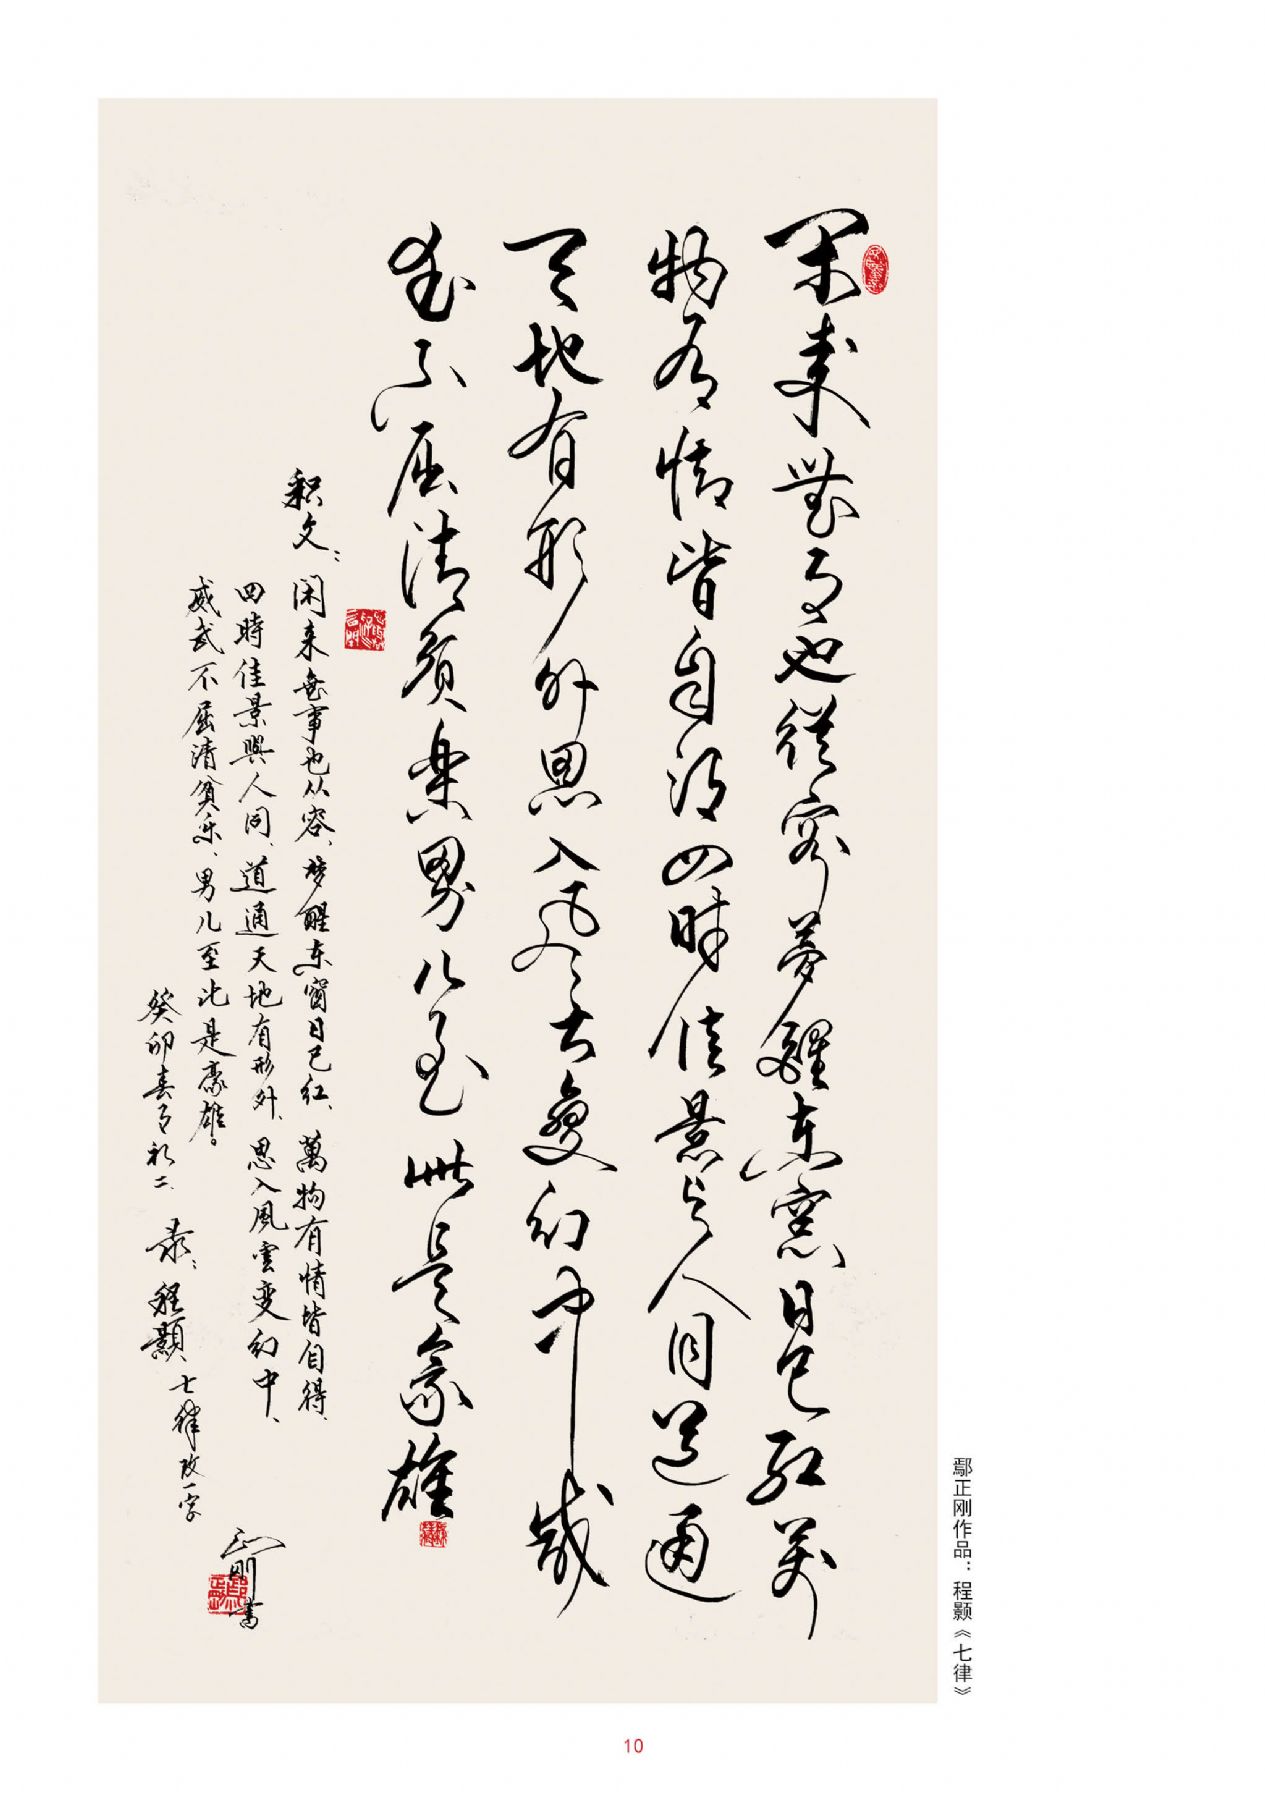 闲来無事也從容夢醒東窗日已紅萬
物有情皆自得四時佳景与人同道通
天地有形外思入風雲變幻中威
武不屈清貧樂男儿至此是豪雄
釈文：闲来無事也从容、梦醒东窗日已红、萬物有情皆自得、
四時佳景與人同、道通天地有形外、思入風雲变幻中、
威武不屈清貧乐、男儿至此是豪雄。
癸卯春月初二、录：程顥、七律改一字
正刚书
鄢正刚作品：程颢《七律》
10